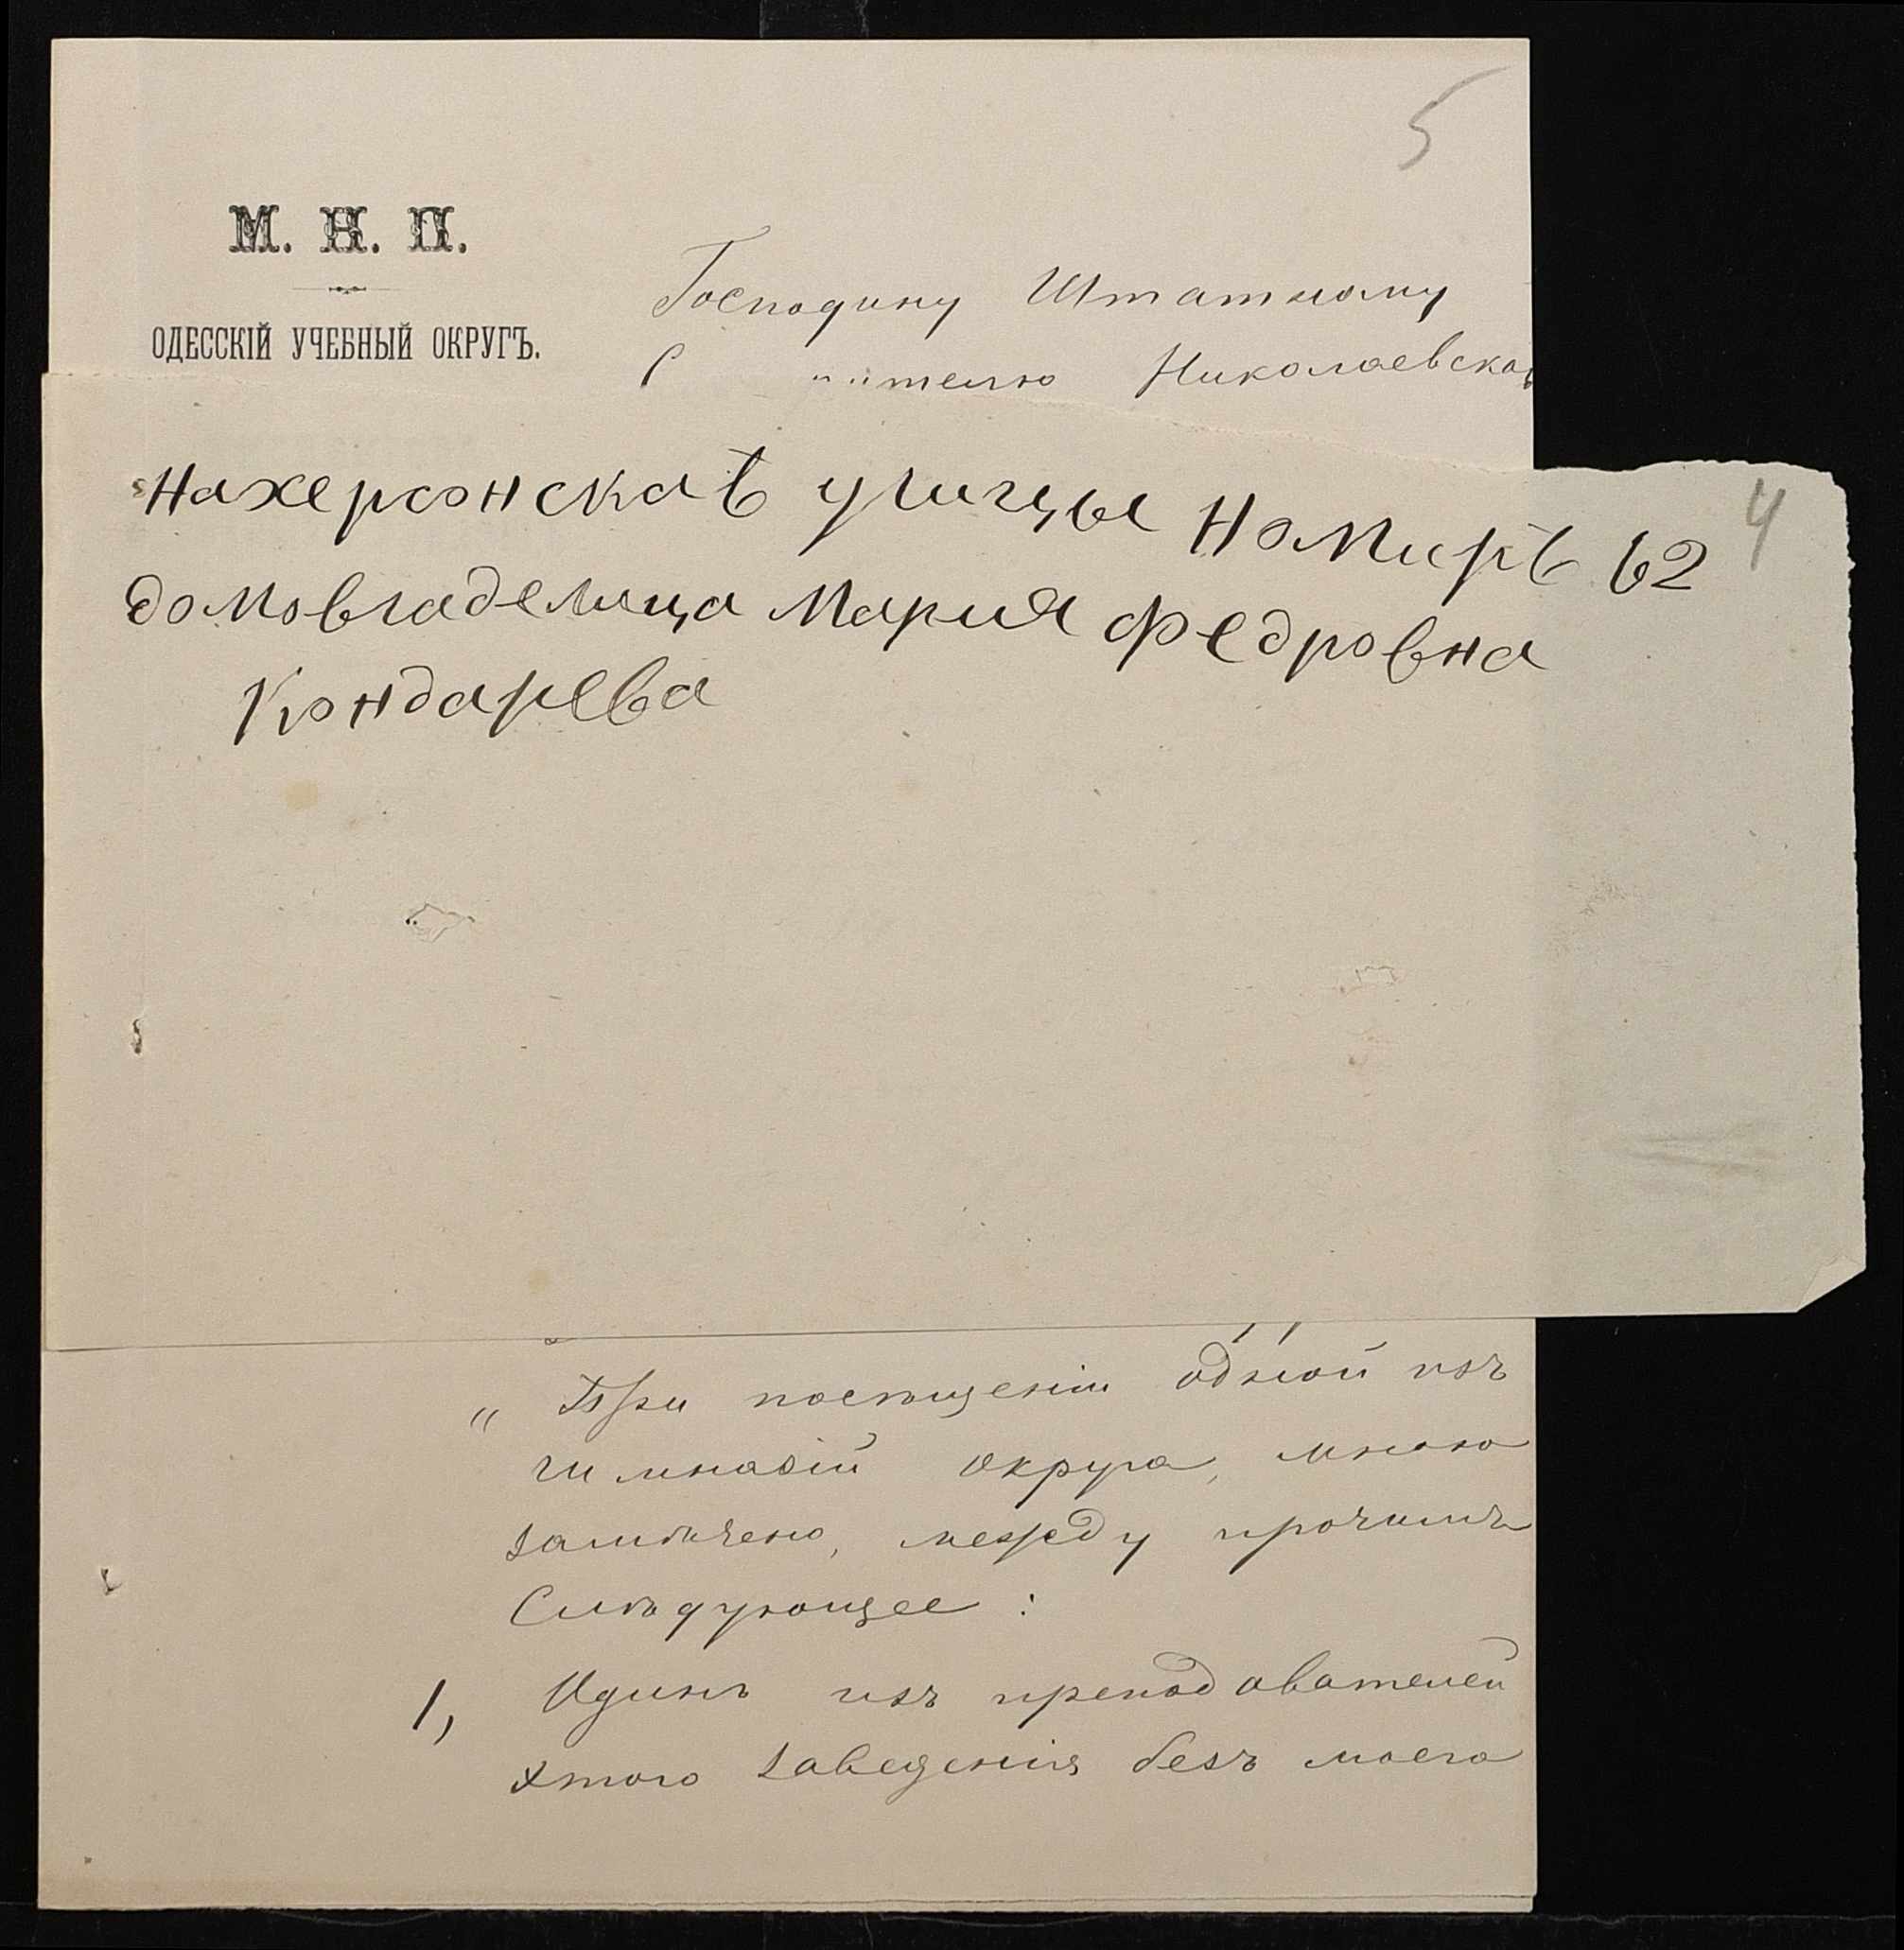 5
М. Н. П.
ОДЕССКІЙ УЧЕБНЫЙ ОКРУГЪ.
Господину Штатному
Николаевской
4
Нахерсонскаѣ улицы Номиръ 62
домовладелица Мария Федровна
Кондарева
„ При посѣщеніи одной изъ
гимназій округа, мною
замѣчено, между прочимъ
Слѣдующее :
1, Одинъ изъ преподавателей
этого заведенія безъ моего